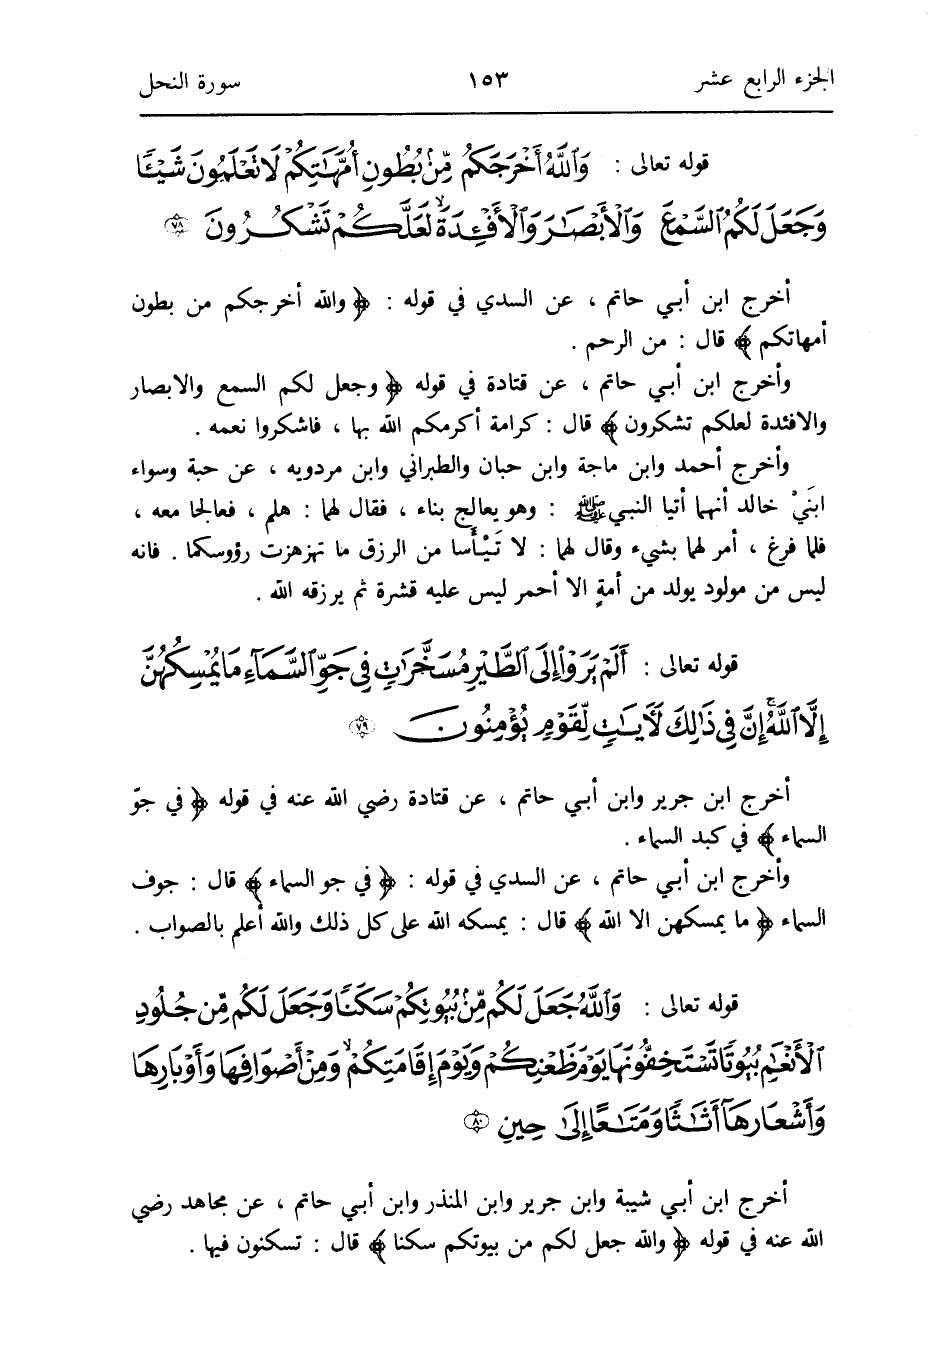 الجزء الرابع عشر ١٥٣ سورة النحل
قوله تعالى : وَٱللَّهُ أَخْرَجَكُم مِّنۢ بُطُونِ أُمَّهَٰتِكُمْ لَا تَعْلَمُونَ شَيْـًٔا
وَجَعَلَ لَكُمُ ٱلسَّمْعَ وَٱلْأَبْصَٰرَ وَٱلْأَفْـِٔدَةَ ۙ لَعَلَّكُمْ تَشْكُرُونَ ٧٨
أخرج ابن أبي حاتم ، عن السدي في قوله : ﴿ والله أخرجكم من بطون
أمهاتكم ﴾ قال : من الرحم .
وأخرج ابن أبي حاتم ، عن قتادة في قوله ﴿ وجعل لكم السمع والابصار
والافئدة لعلكم تشكرون ﴾ قال : كرامة أكرمكم الله بها ، فاشكروا نعمه .
وأخرج أحمد وابن ماجة وابن حبان والطبراني وابن مردويه ، عن حبة وسواء
ابنَيْ خالد أنهما أتيا النبي ﷺ : وهو يعالج بناء ، فقال لهما : هلم ، فعالجا معه ،
فلما فرغ ، أمر لهما بشيء وقال لهما : لا تَيْأَسا من الرزق ما تهزهزت رؤوسكما . فانه
ليس من مولود يولد من أمةٍ الا أحمر ليس عليه قشرة ثم يرزقه الله .
قوله تعالى : أَلَمْ يَرَوْا۟ إِلَى ٱلطَّيْرِ مُسَخَّرَٰتٍ فِى جَوِّ ٱلسَّمَآءِ مَا يُمْسِكُهُنَّ
إِلَّا ٱللَّهُ ۗ إِنَّ فِى ذَٰلِكَ لَـَٔايَٰتٍ لِّقَوْمٍ يُؤْمِنُونَ ٧٩
أخرج ابن جرير وابن أبي حاتم ، عن قتادة رضي الله عنه في قوله ﴿ في جوّ
السماء ﴾ في كبد السماء .
وأخرج ابن أبي حاتم ، عن السدي في قوله : ﴿ في جو السماء ﴾ قال : جوف
السماء ﴿ ما يمسكهن الا الله ﴾ قال : يمسكه الله على كل ذلك والله أعلم بالصواب .
قوله تعالى : وَٱللَّهُ جَعَلَ لَكُم مِّنۢ بُيُوتِكُمْ سَكَنًا وَجَعَلَ لَكُم مِّن جُلُودِ
ٱلْأَنْعَٰمِ بُيُوتًا تَسْتَخِفُّونَهَا يَوْمَ ظَعْنِكُمْ وَيَوْمَ إِقَامَتِكُمْ ۙ وَمِنْ أَصْوَافِهَا وَأَوْبَارِهَا
وَأَشْعَارِهَآ أَثَٰثًا وَمَتَٰعًا إِلَىٰ حِينٍ ٨٠
أخرج ابن أبي شيبة وابن جرير وابن المنذر وابن أبي حاتم ، عن مجاهد رضي
الله عنه في قوله ﴿ والله جعل لكم من بيوتكم سكنا ﴾ قال : تسكنون فيها .